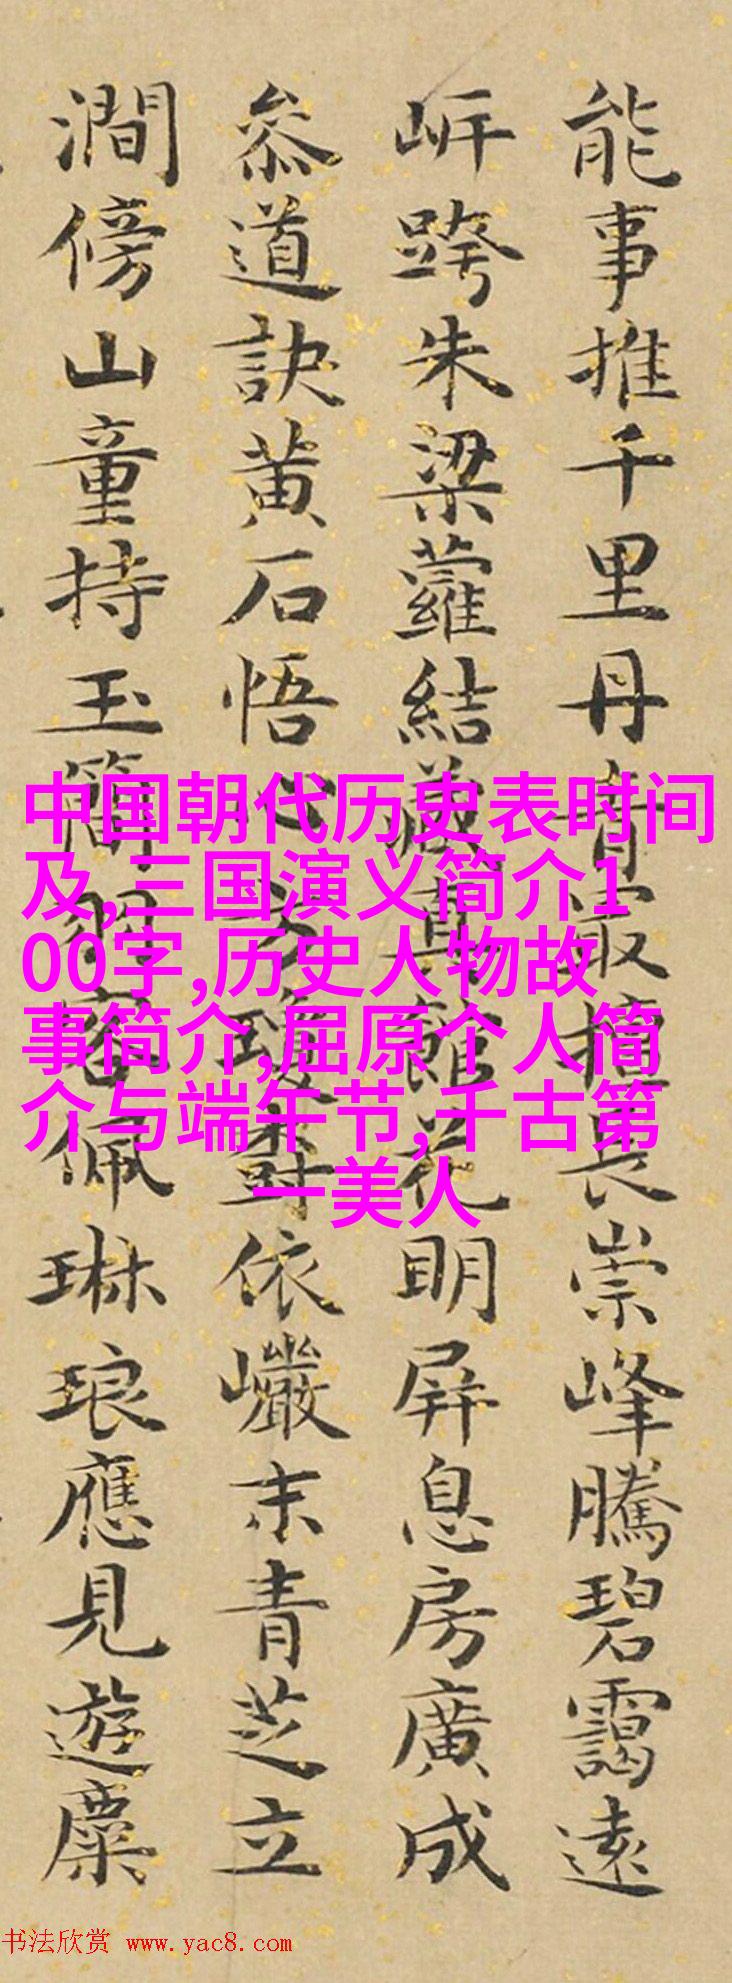 能事推千里丹青最擅長崇峰騰碧靄遠
岓跨朱梁蘿結藏真館花明屏息房廣成
叅道訣黃石悟對依巘末青芝立
澗傍山童持玉簡佩琳琅應見遊麋
中国朝代历史表时间
及,三国演义简介1
00字,历史人物故
事简介,屈原个人简
介与端午节,千古第
一美人
书法欣赏 www.yac8.com